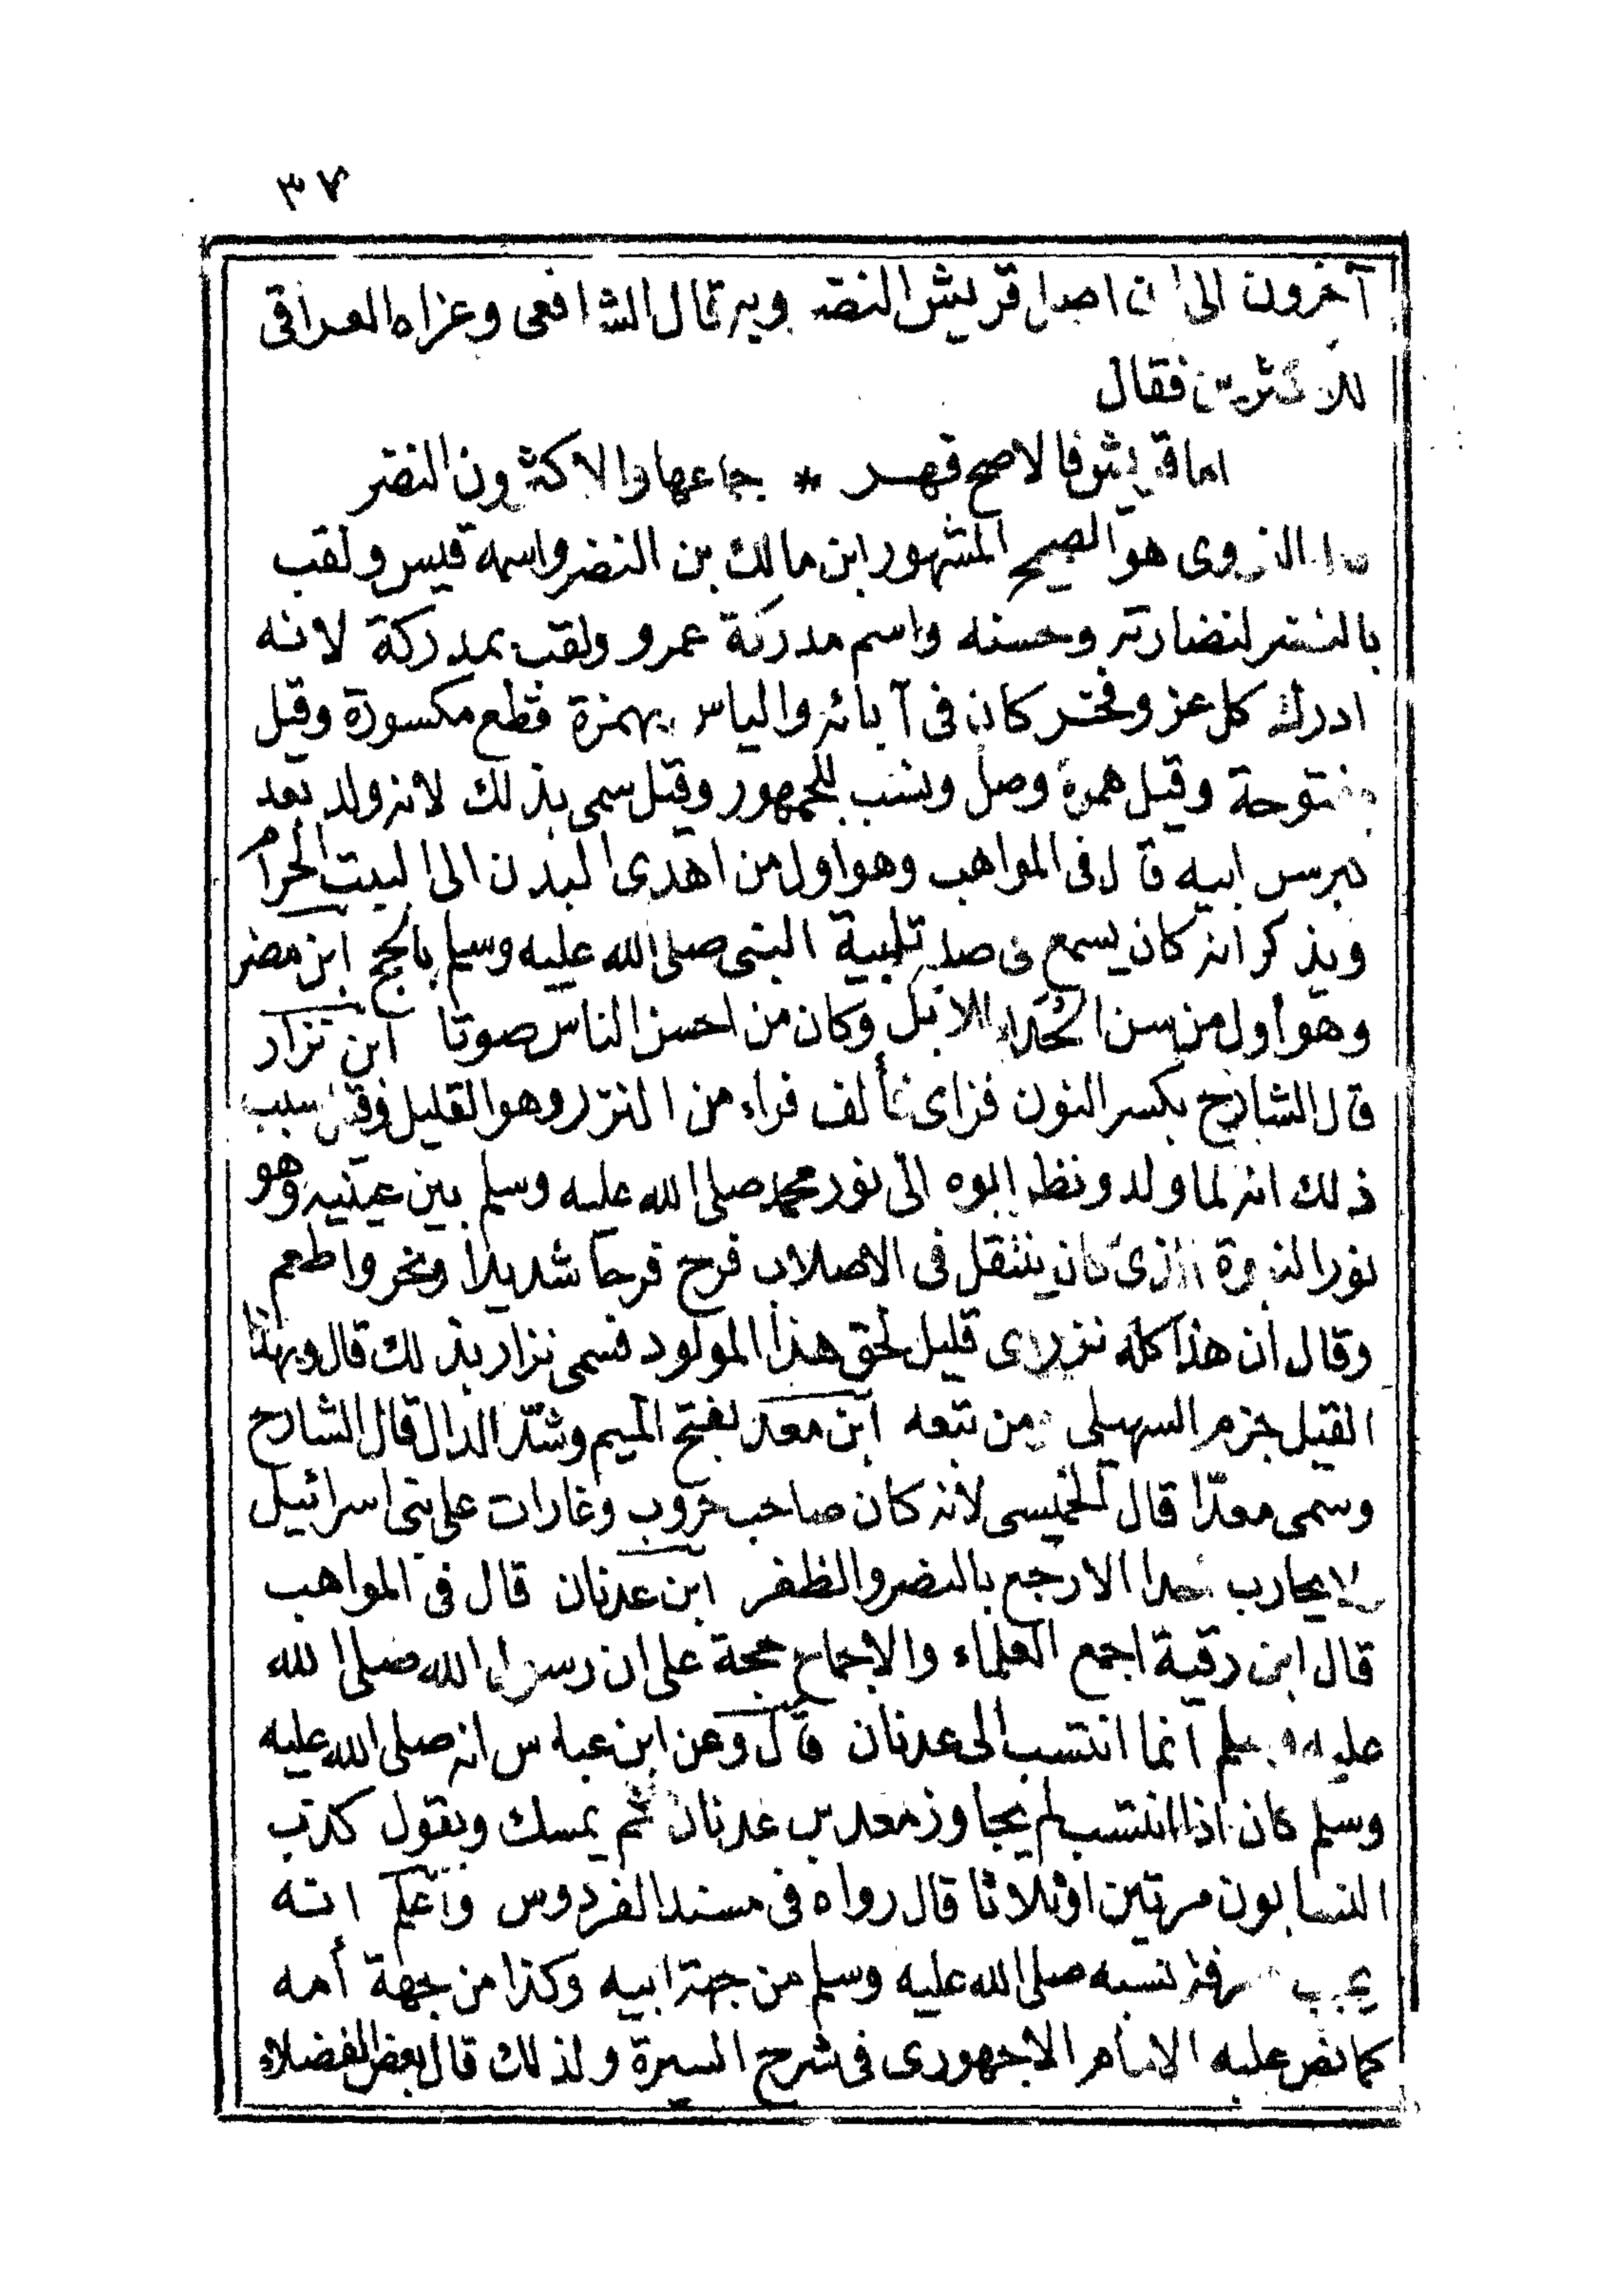 ٣٧
آخرون الى ان اصل قريش النضر وبه قال الشافعى وعزاه العراقى
للاكثرين فقال
اما قريش فالاصح فهر * جماعها والاكثرون النضر
النووى هو الصحيح المشهور ابن مالك بن النضر واسمه قيس ولقب
بالنضر لنضارته وحسنه واسم مدركة عمرو ولقب بمدركة لانه
ادرك كل عز وفخر كان فى آبائه والياس بهمزة قطع مكسورة وقيل
مفتوحة وقيل همزة وصل ونسب للجمهور وقيل سمى بذلك لانه ولد بعد
كبر سن ابيه قال فى المواهب وهو اول من اهدى البدن الى البيت الحرام
ويذكر انه كان يسمع فى صلبه تلبية النبى صلى الله عليه وسلم بالحج ابن مضر
وهو أول من سن الحداء للابل وكان من احسن الناس صوتا ابن نزار
قال الشارح بكسر النون فزاى فألف فراء من النزر وهو القليل وقيل سبب
ذلك انه لما ولد ونظر ابوه الى نور محمد صلى الله عليه وسلم بين عينيه وهو
نور النبوة الذى كان ينتقل فى الاصلاب فرح فرحا شديدا ونحر واطعم
وقال ان هذا كله نزر اى قليل لحق هذا المولود فسمى نزار بذلك قال وبهذا
القيل جزم السهيلى ومن تبعه ابن معد بفتح الميم وشد الدال قال الشارح
وسمى معدّا قال الخميسى لانه كان صاحب حروب وغارات على بنى اسرائيل
لا يحارب احدا الا رجع بالنصر والظفر ابن عدنان قال فى المواهب
قال ابن دقية اجمع العلماء والاجماع حجة على ان رسول الله صلى الله
عليه وسلم انما انتسب الى عدنان قال وعن ابن عباس انه صلى الله عليه
وسلم كان اذا انتسب لم يجاوز معد بن عدنان ثم يمسك ويقول كذب
النسابون مرتين او ثلاثا قال رواه فى مسند الفردوس واعلم انه
يجب معرفة نسبه صلى الله عليه وسلم من جهة ابيه وكذا من جهة أمه
كما نص عليه الامام الاجهورى فى شرح السيرة ولذلك قال بعض الفضلاء